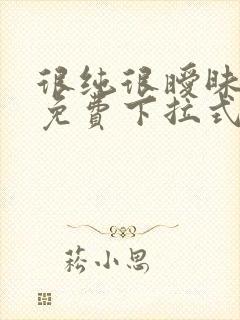 很纯很暧昧
免费下拉式
菘小思